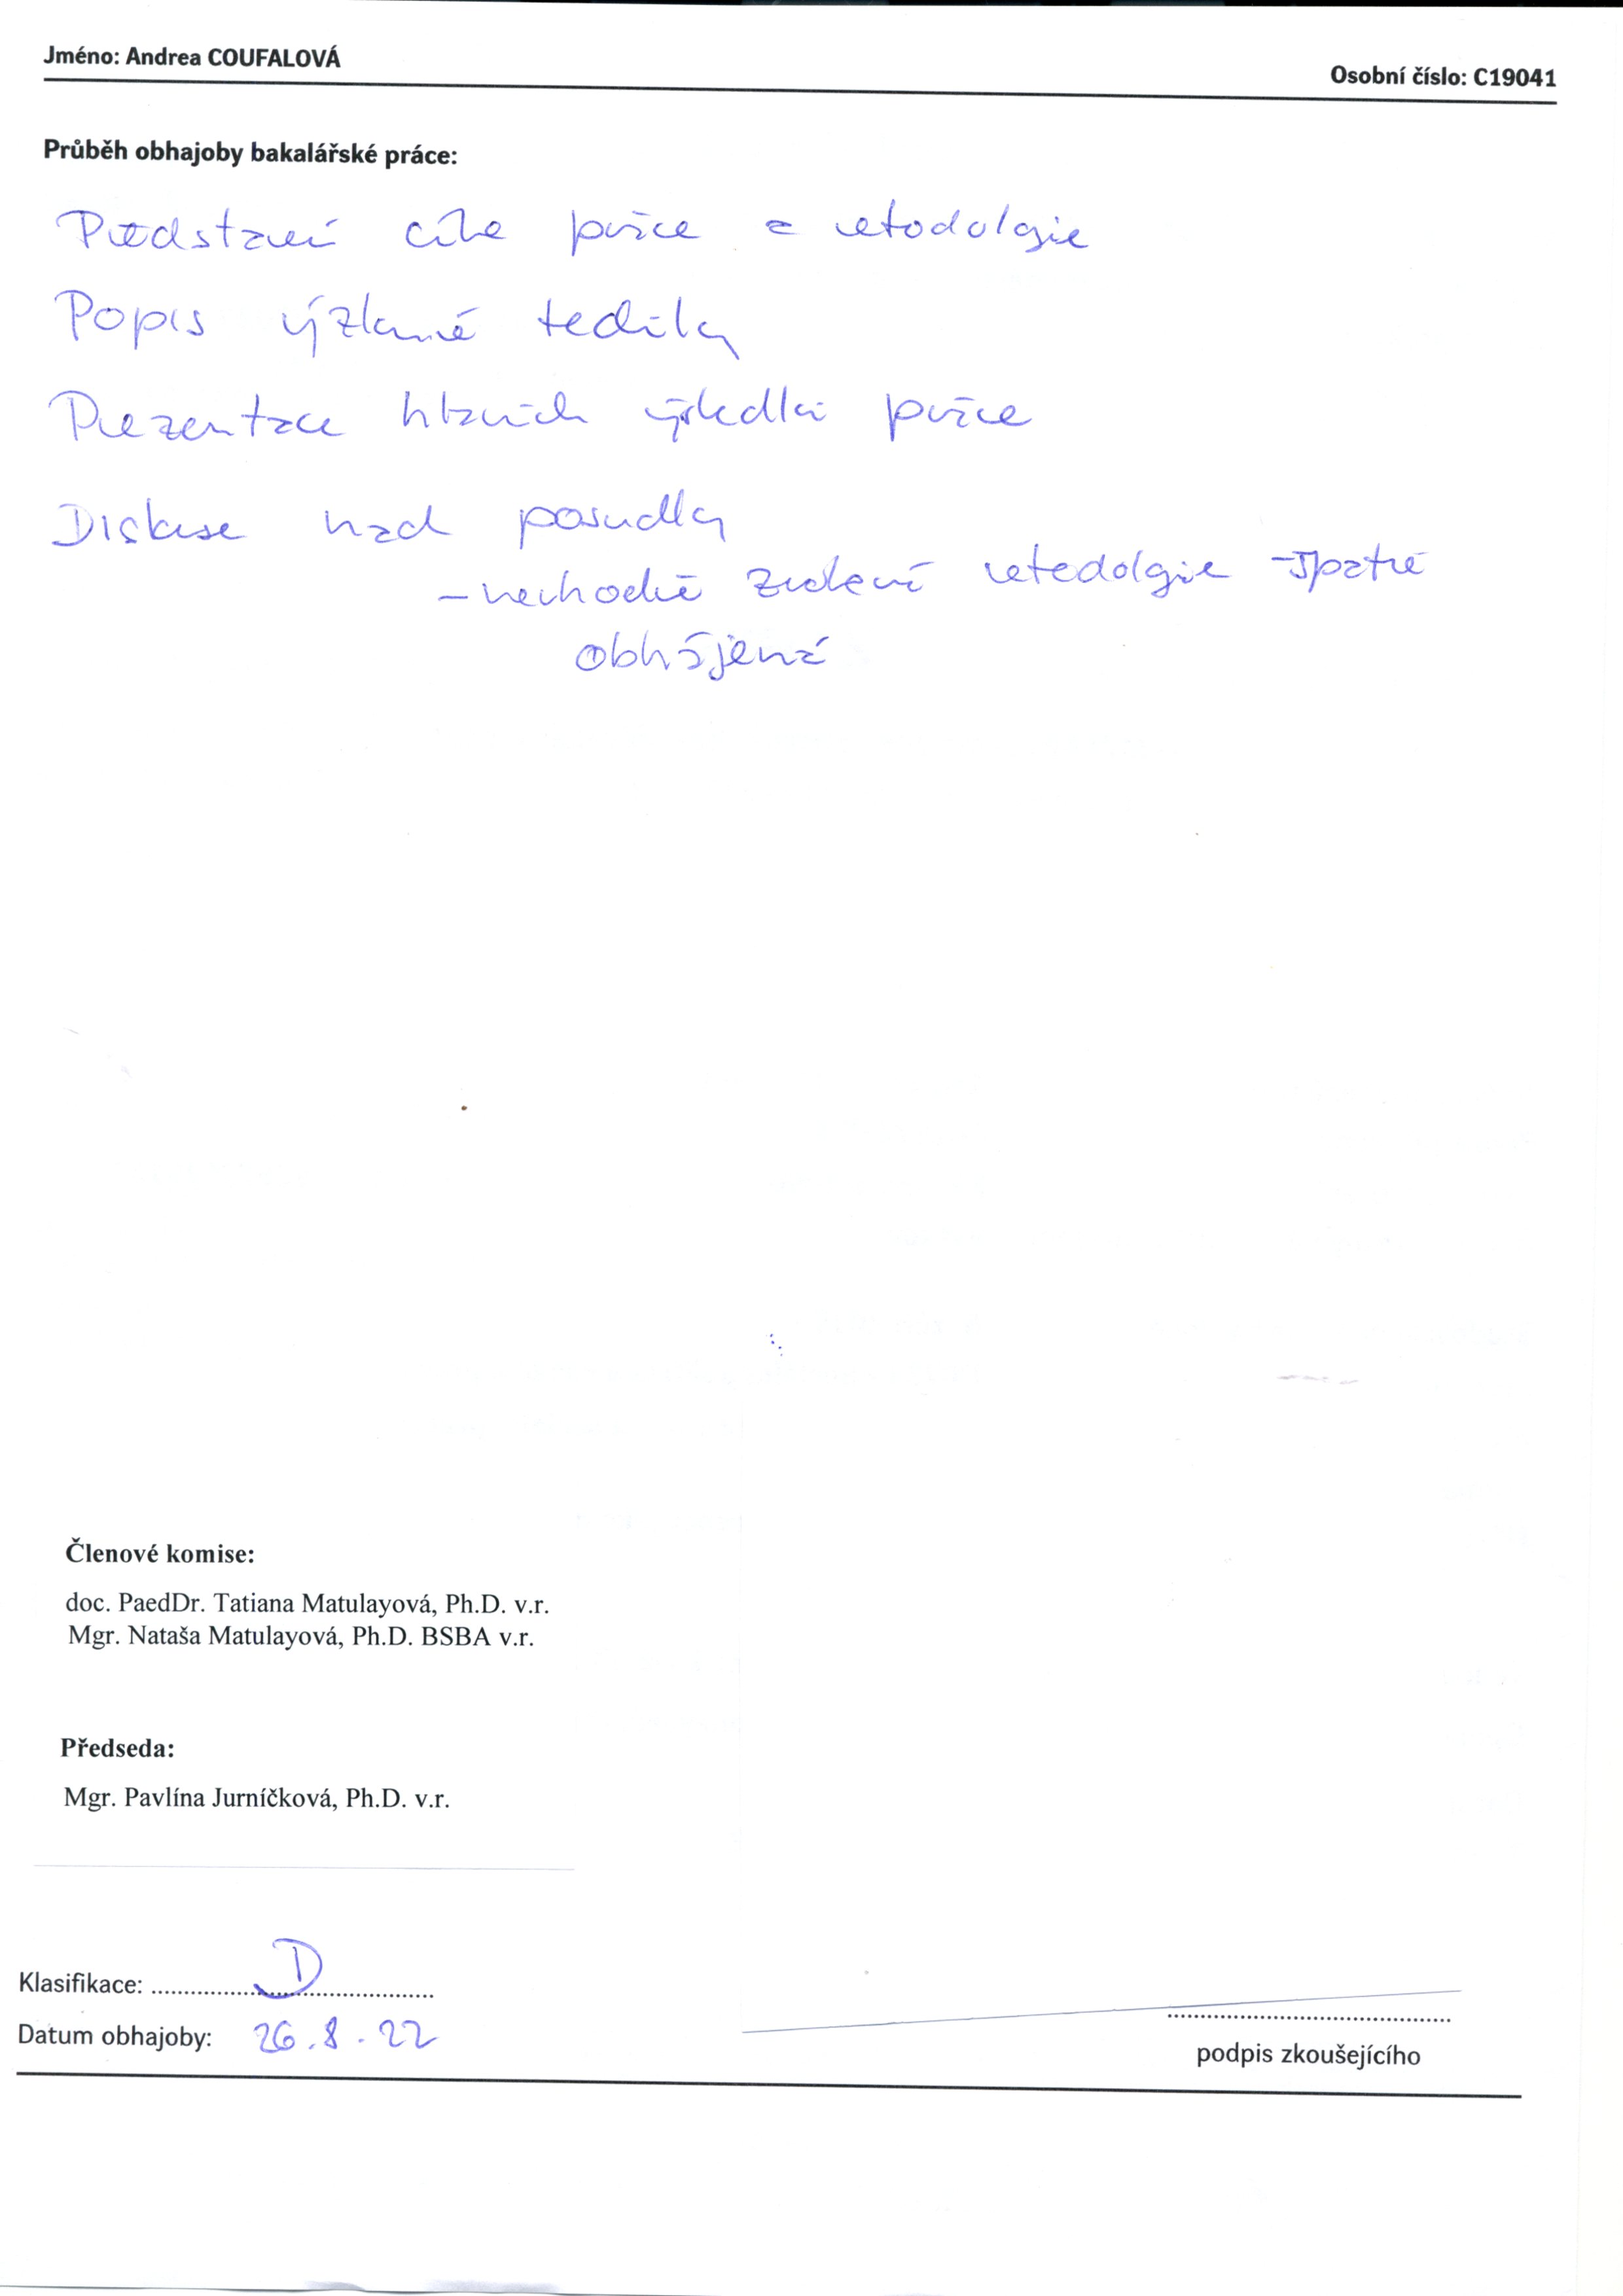 Jméno: Andrea COUFALOVÁ
Osobní číslo: C19041
Průběh obhajoby bakalářské práce:
Představení cíle práce a metodologie
Popis výzkumné techniky
Prezentace hlavních výsledků práce
Diskuse nad posudky
- nevhodně zvolená metodologie - špatně
obhájená
Členové komise:
doc. PaedDr. Tatiana Matulayová, Ph.D. v.r.
Mgr. Nataša Matulayová, Ph.D. BSBA v.r.
Předseda:
Mgr. Pavlína Jurníčková, Ph.D. v.r.
Klasifikace: D
Datum obhajoby: 26.8.22
podpis zkoušejícího